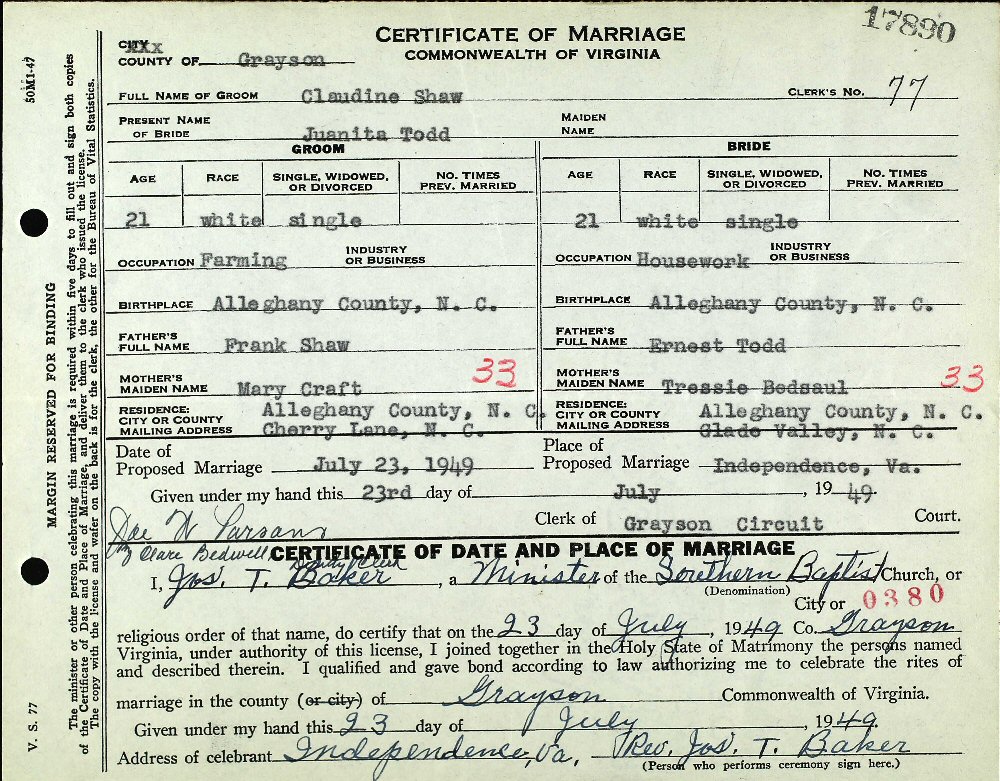 17890
CERTIFICATE OF MARRIAGE
COMMONWEALTH OF VIRGINIA
CITY xxx
COUNTY OF Grayson
FULL NAME OF GROOM Claudine Shaw CLERK'S NO. 77
PRESENT NAME OF BRIDE Juanita Todd MAIDEN NAME
GROOM BRIDE
AGE RACE SINGLE, WIDOWED, OR DIVORCED NO. TIMES PREV. MARRIED AGE RACE SINGLE, WIDOWED, OR DIVORCED NO. TIMES PREV. MARRIED
21 white single 21 white single
OCCUPATION Farming INDUSTRY OR BUSINESS OCCUPATION Housework INDUSTRY OR BUSINESS
BIRTHPLACE Alleghany County, N. C. BIRTHPLACE Alleghany County, N. C.
FATHER'S FULL NAME Frank Shaw FATHER'S FULL NAME Ernest Todd
MOTHER'S MAIDEN NAME Mary Craft 33 MOTHER'S MAIDEN NAME Tressie Bedsaul 33
RESIDENCE: CITY OR COUNTY Alleghany County, N. C. RESIDENCE: CITY OR COUNTY Alleghany County, N. C.
MAILING ADDRESS Cherry Lane, N. C. MAILING ADDRESS Glade Valley, N. C.
Date of Proposed Marriage July 23, 1949 Place of Proposed Marriage Independence, Va.
Given under my hand this 23rd day of July, 1949.
Joe W Parsons Clerk of Grayson Circuit Court.
By Clare Bedwell Deputy Clerk
CERTIFICATE OF DATE AND PLACE OF MARRIAGE
I, Jos. T. Baker, a Minister of the Southern Baptist Church, or
(Denomination) City or 0380
religious order of that name, do certify that on the 23 day of July, 1949 Co. Grayson
Virginia, under authority of this license, I joined together in the Holy State of Matrimony the persons named
and described therein. I qualified and gave bond according to law authorizing me to celebrate the rites of
marriage in the county (or city) of Grayson Commonwealth of Virginia.
Given under my hand this 23 day of July, 1949.
Address of celebrant Independence, Va. Rev. Jos. T. Baker
(Person who performs ceremony sign here.)
50M1-47
V. S. 77
MARGIN RESERVED FOR BINDING
The minister or other person celebrating this marriage is required within five days to fill out and sign both copies
of the Certificate of Date and Place of Marriage, and deliver them to the clerk who issued the license.
The copy with the license and wafer on the back is for the clerk, the other for the Bureau of Vital Statistics.